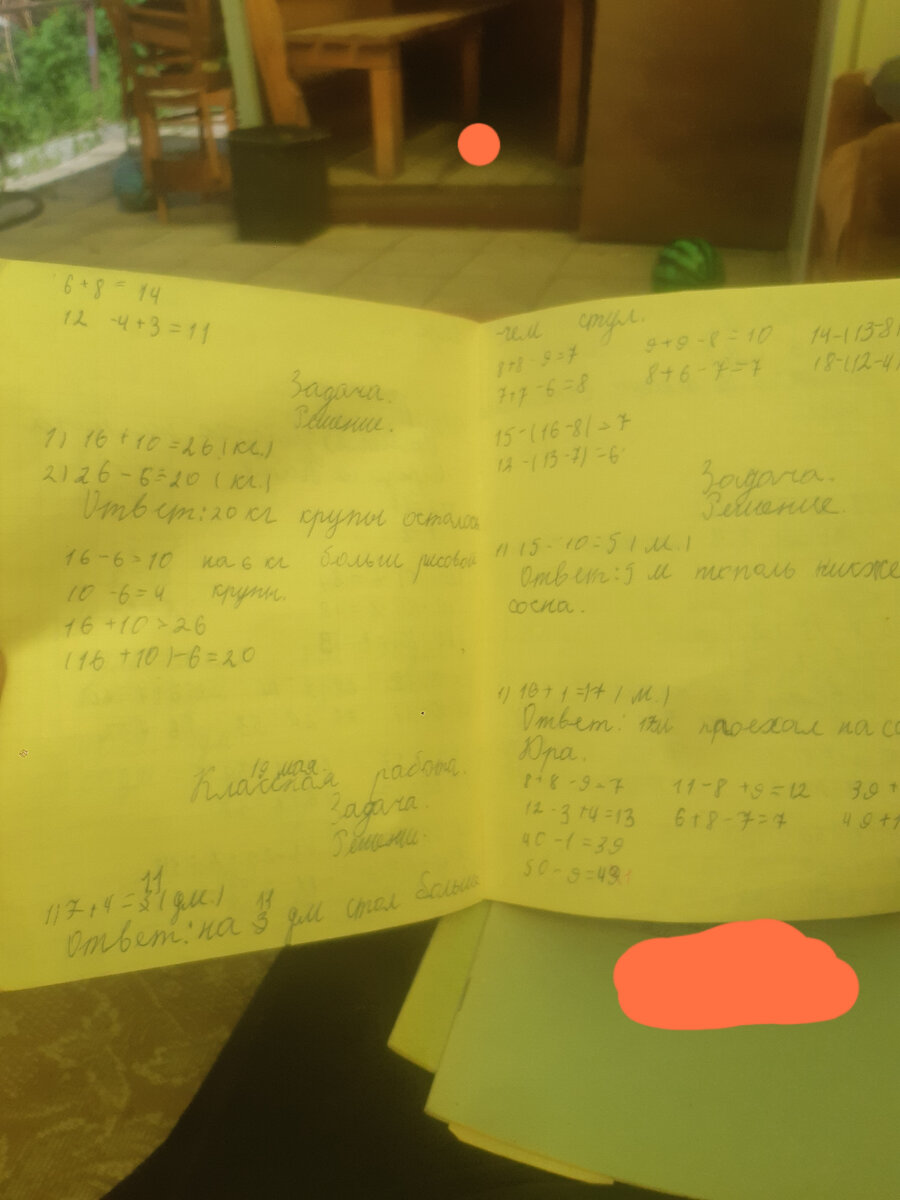 6+8=14
12-4+3=11
Задача.
Решение.
1) 16+10=26 (кг.)
2) 26-6=20 (кг.)
Ответ: 20 кг крупы осталось
16-6=10 на 6 кг больш рисовой
10-6=4 крупы.
16+10=26
(16+10)-6=20
19 мая.
Классная работа.
Задача.
Решение.
11
1) 7+4=3 (дм.)
11
Ответ: на 3 дм стол больше
чем стул.
8+8-9=7 9+9-8=10 14-(13-8)
7+7-6=8 8+6-7=7 18-(12-4)
15-(16-8)=7
12-(13-7)=6
Задача.
Решение.
1) 15-10=5 (м.)
Ответ: 5 м тополь ниже
сосна.
1) 16+1=17 (м.)
Ответ: 17м проехал на
Юра.
8+8-9=7 11-8+9=12 39+
12-3+4=13 6+8-7=7 49+1
40-1=39
50-9=49